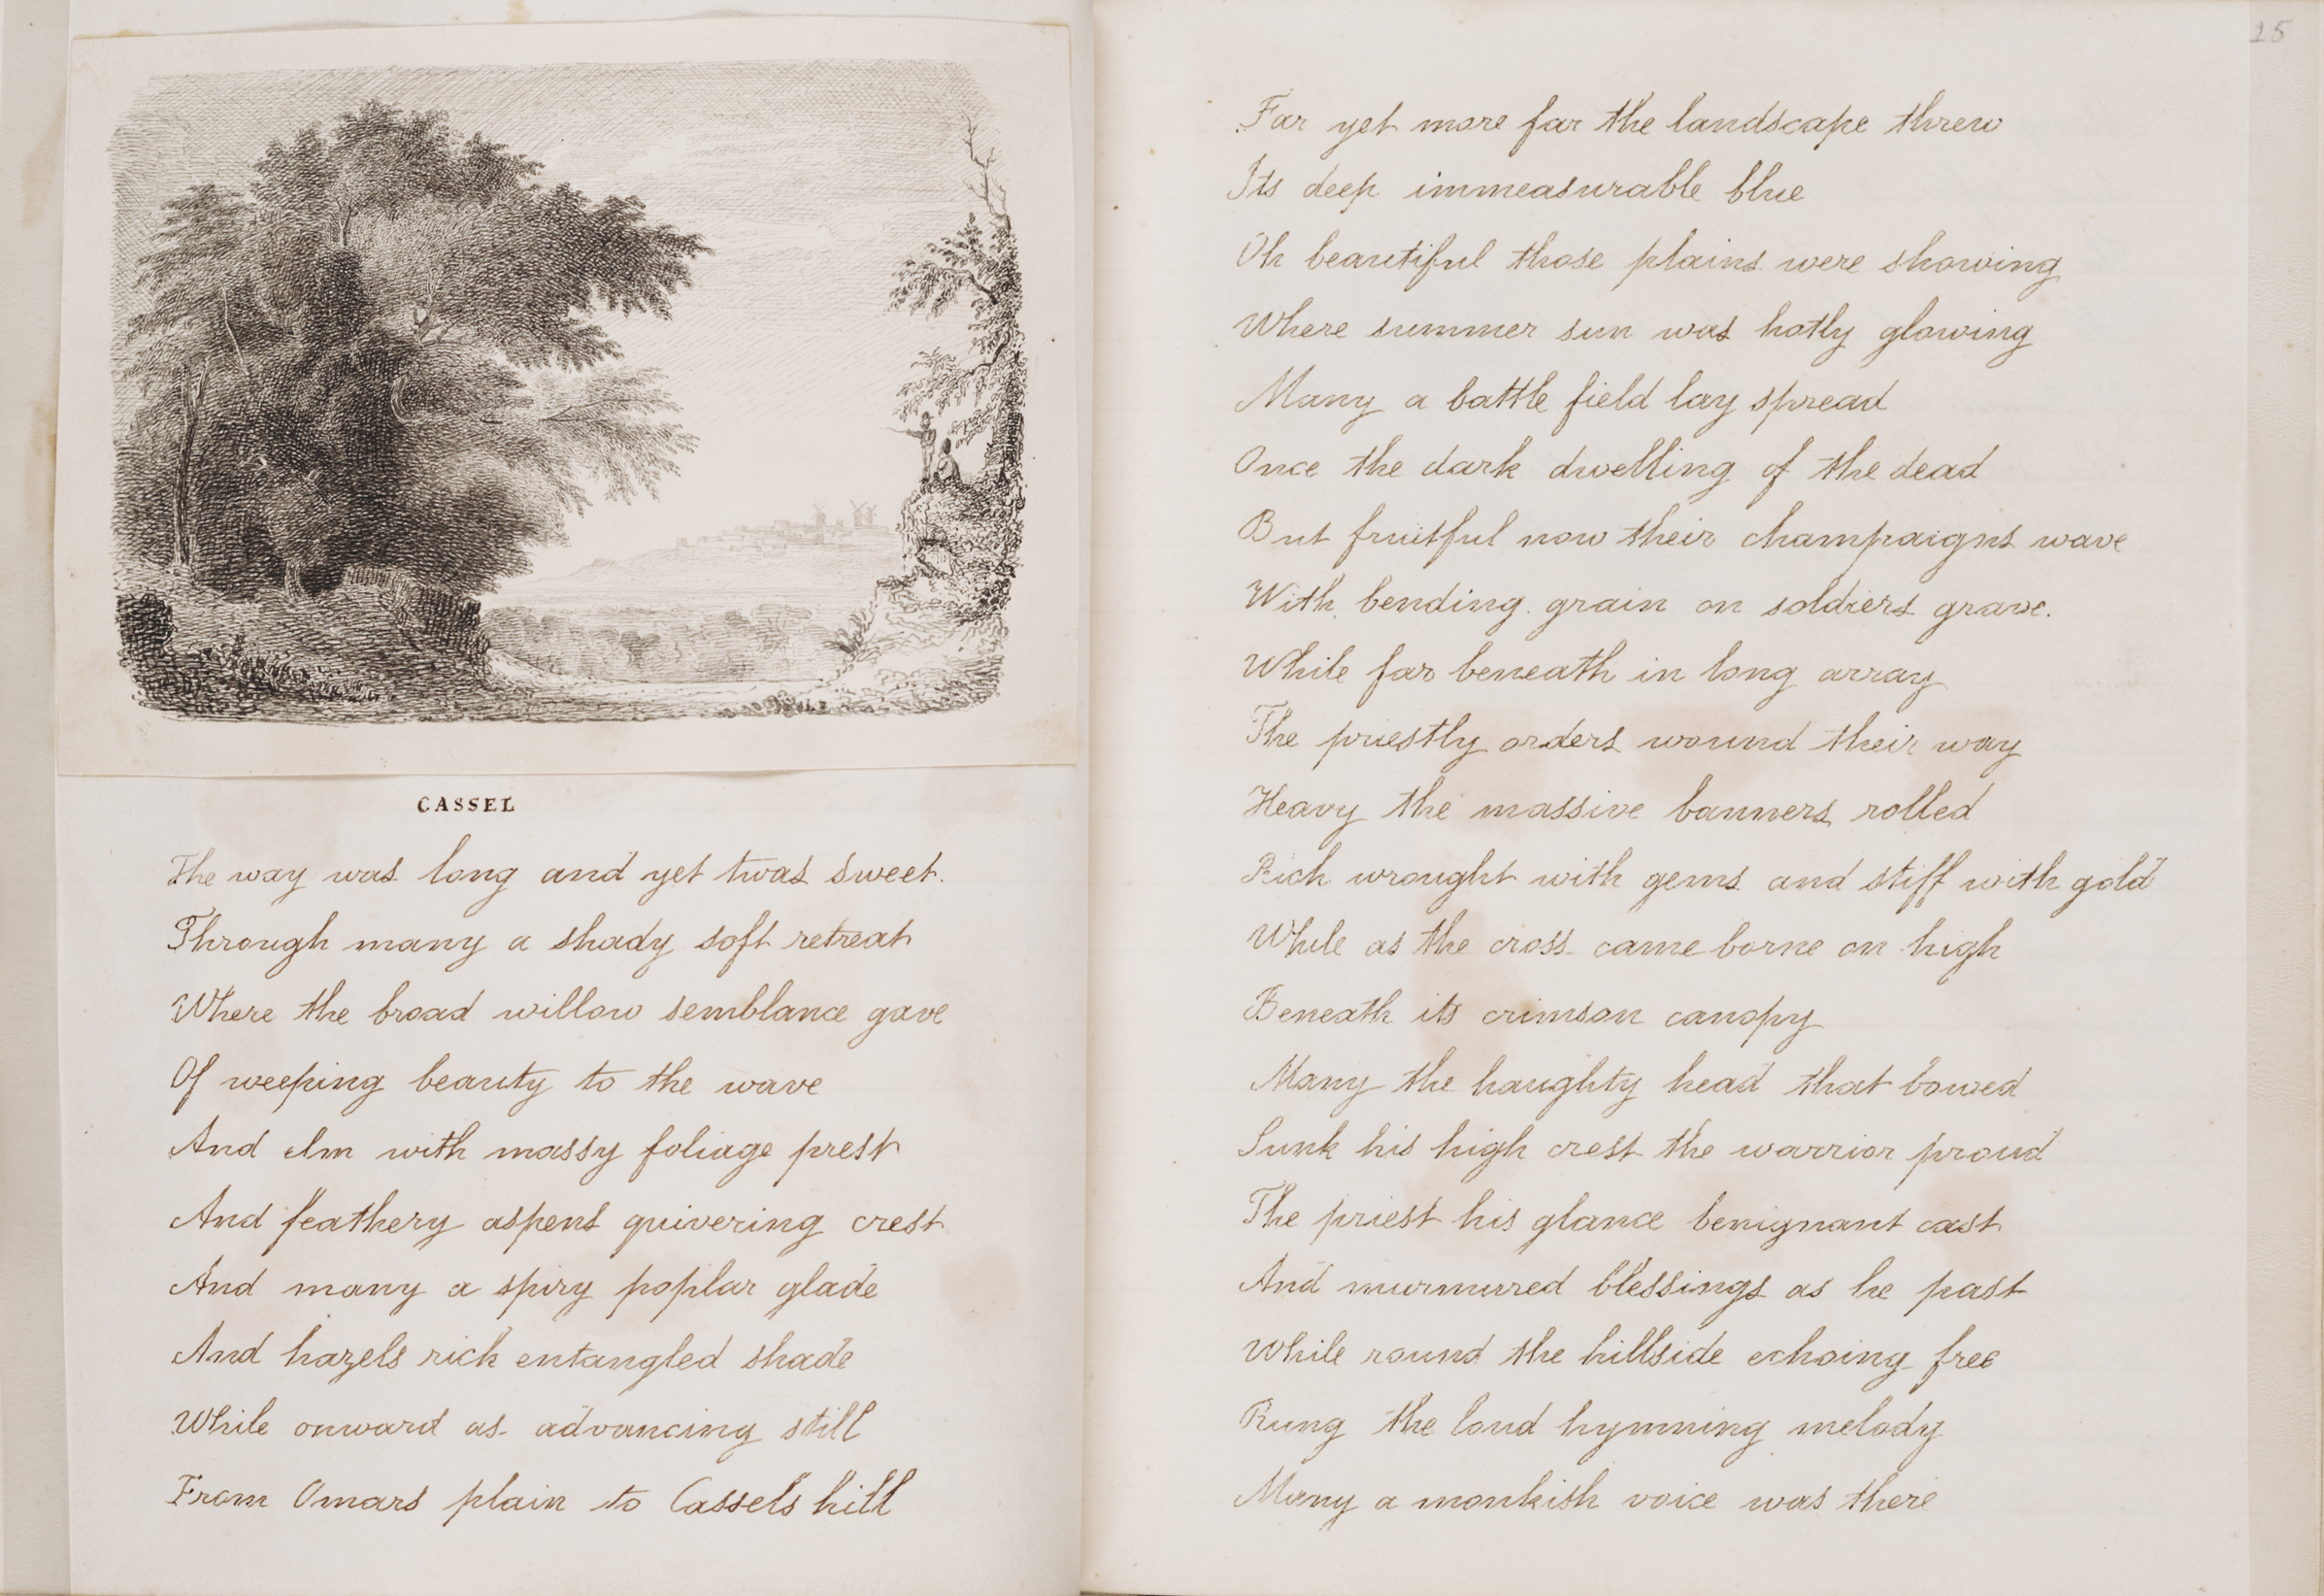 CASSEL
The way was long and yet twas sweet.
Through many a shady soft retreat
Where the broad willow semblance gave
Of weeping beauty to the wave
And elm with massy foliage prest
And feathery aspens quivering crest
And many a spiry poplar glade
And hazels rich entangled shade
While onward as advancing still
From Omars plain to Cassels hill
25
Far yet more far the landscape threw
Its deep immeasurable blue
Oh beautiful those plains were showing
Where summer sun was hotly glowing
Many a battle field lay spread
Once the dark dwelling of the dead
But fruitful now their champaigns wave
With bending grain on soldiers grave.
While far beneath in long array
The priestly orders wound their way
Heavy the massive banners rolled
Rich wrought with gems and stiff with gold
While as the cross came borne on high
Beneath its crimson canopy
Many the haughty head that bowed
Sunk his high crest the warrior proud
The priest his glance benignant cast
And murmured blessings as he past
While round the hillside echoing free
Rung the loud hymning melody
Many a monkish voice was there